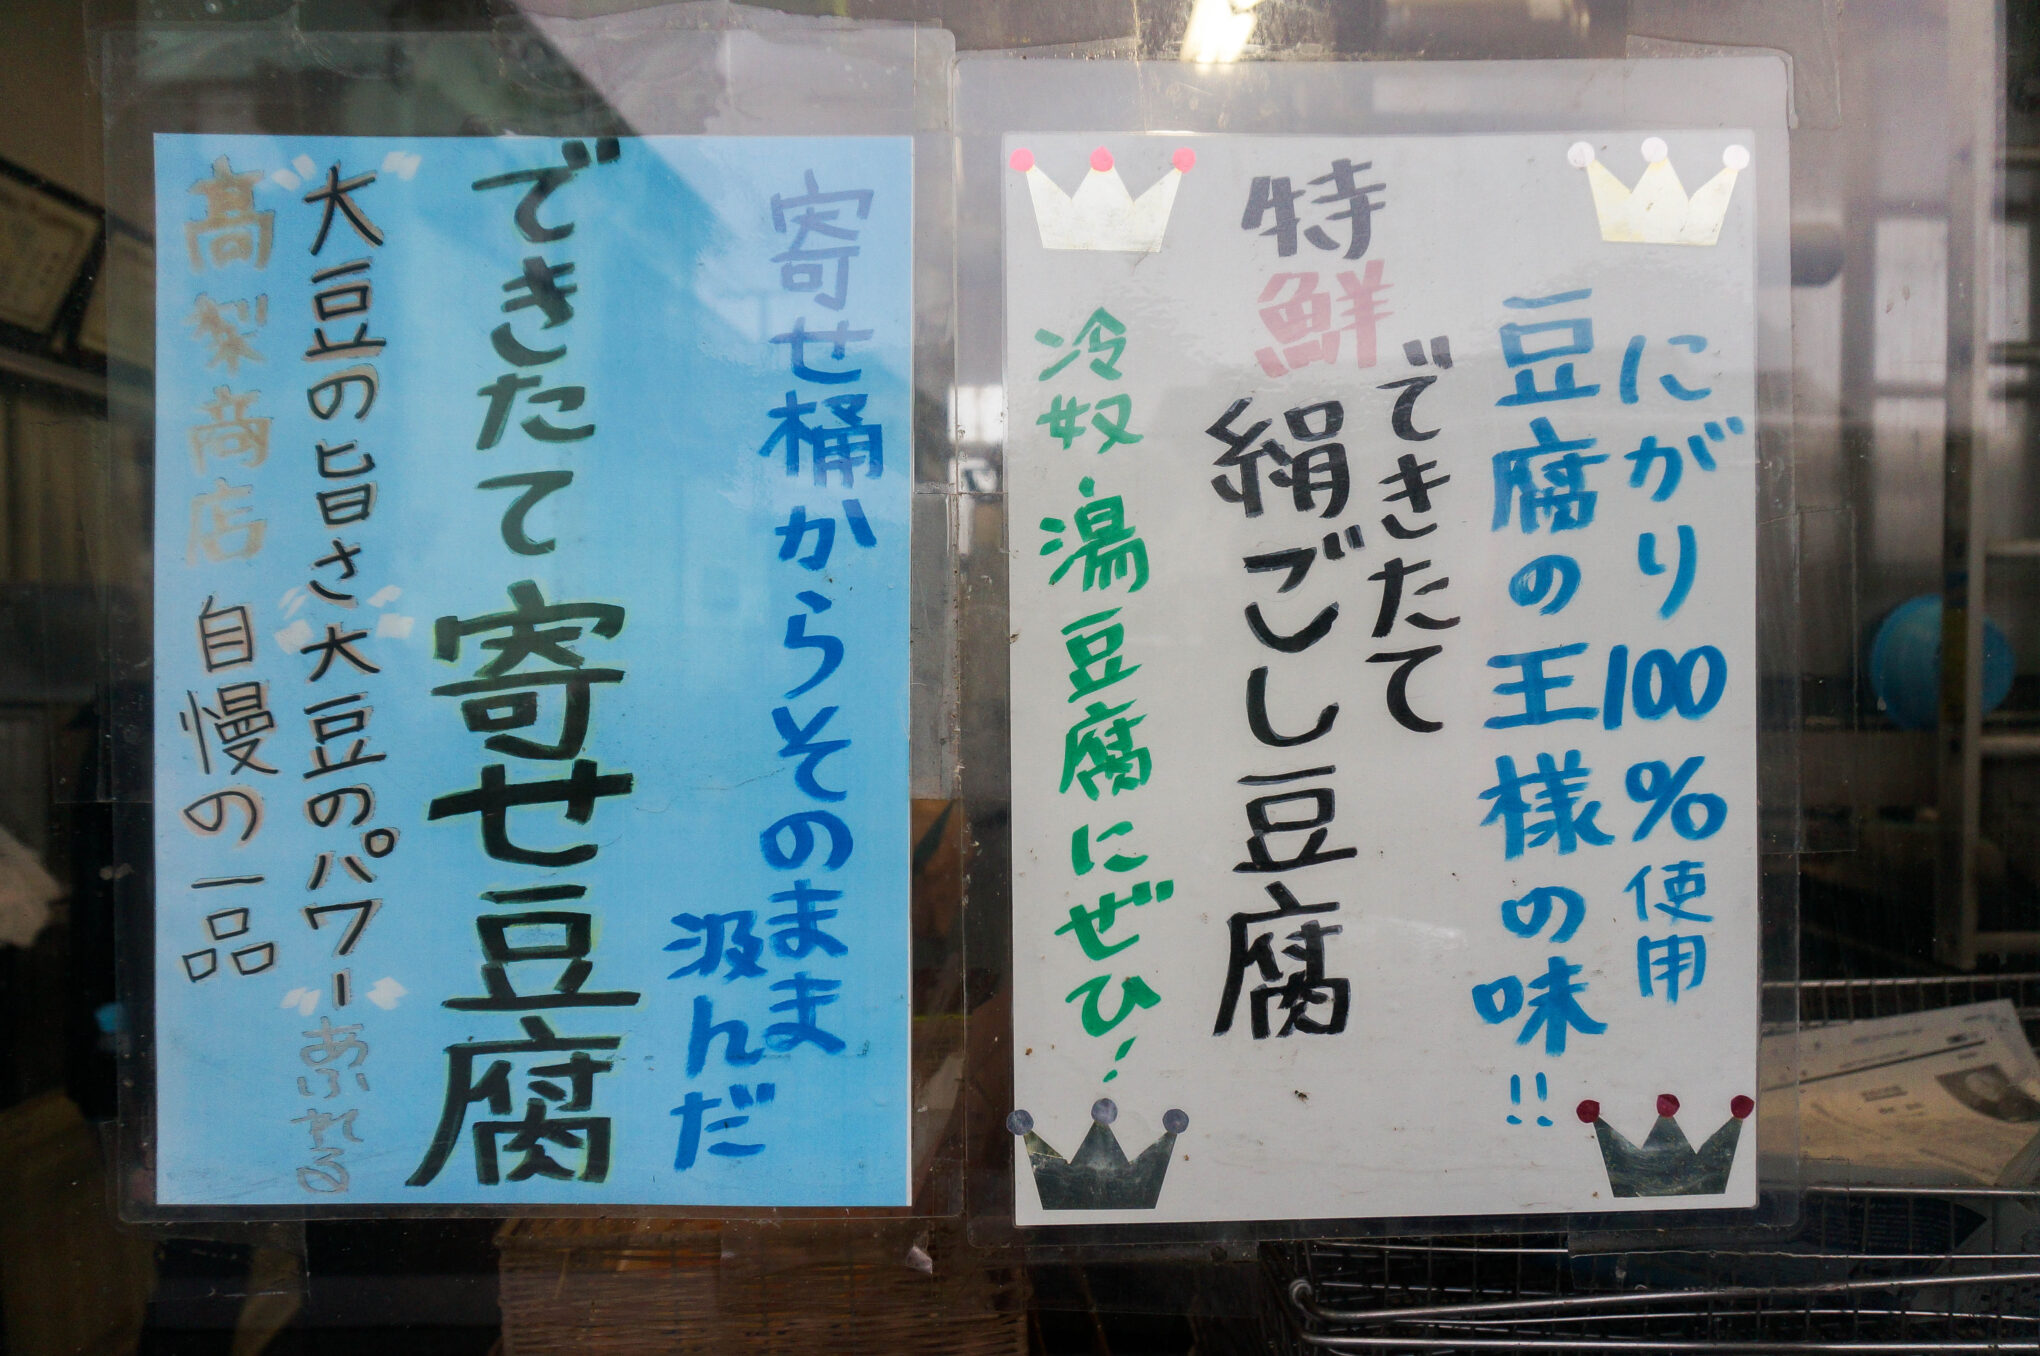 にがり100%使用
豆腐の王様の味!!
できたて
特鮮
絹ごし豆腐
冷奴・湯豆腐にぜひ!
寄せ桶からそのまま
汲んだ
できたて寄せ豆腐
"大豆の旨さ""大豆のパワー"あふれる
高梨商店 自慢の一品